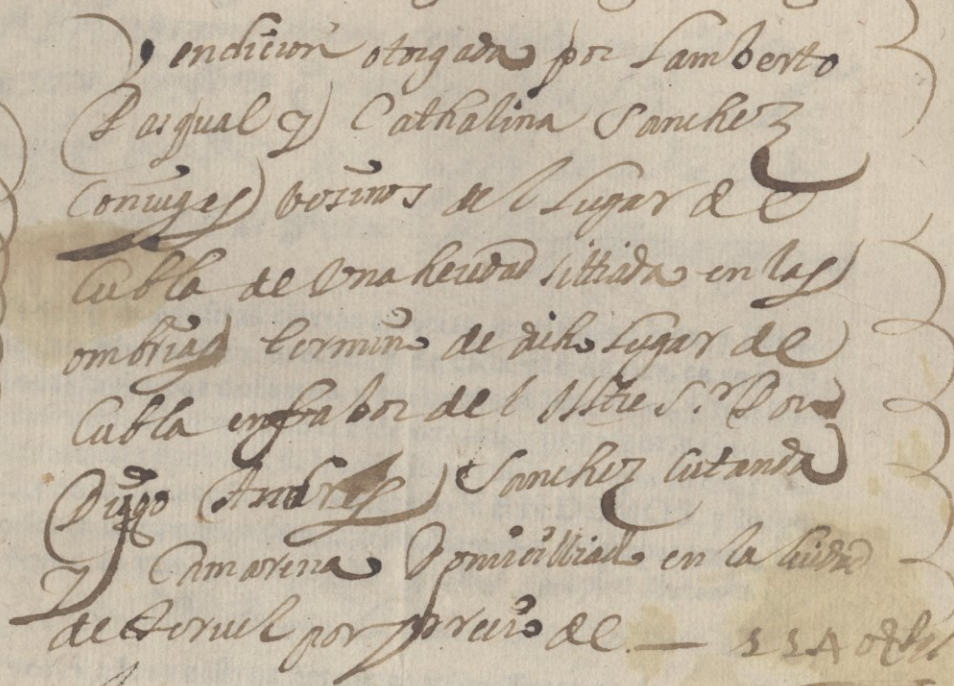 Vendicion otorgada por Lamberto
Pasqual y Cathalina Sanchez
Coniuges vezinos del Lugar de
Cubla de Una heredad sittiada en las
ombrias termino de dicho Lugar de
Cubla en fabor del Illtre S.r Don
Diego Andres Sanchez Cutanda
y Camarena Domicilliado en la Ciudad
de Teruel por precio de —